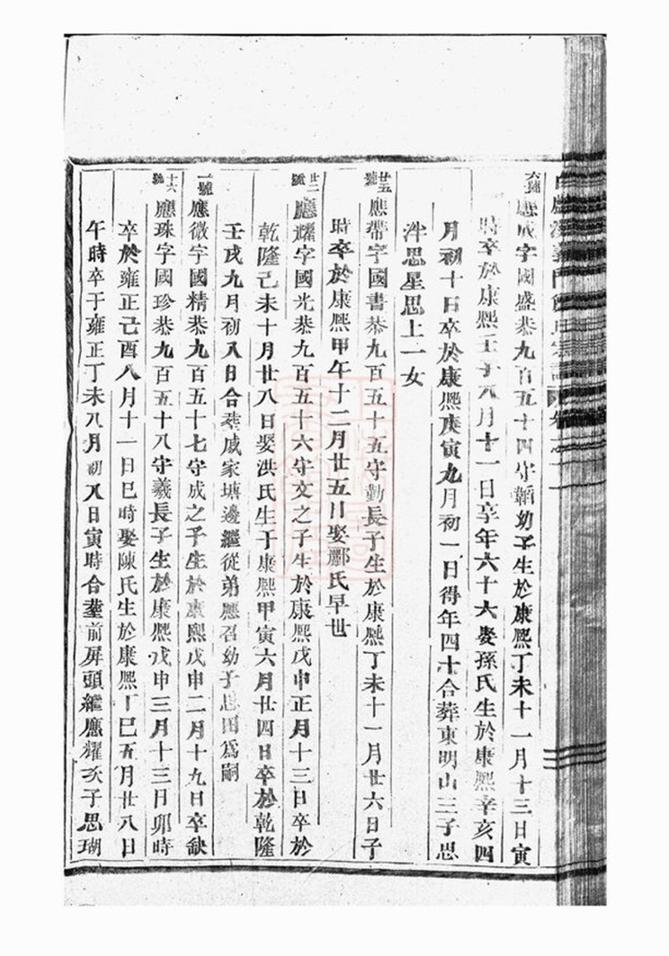 六號
應成字國盛恭九百五十四守韜幼子生於康熙丁未十一月十三日寅
時卒於康熙壬子六月十一日享年六十六娶孫氏生於康熙辛亥四
月初十日卒於康熙庚寅九月初一日得年四十合葬東明山三子思
泮思星思上一女
廿五號
應帶字國書恭九百五十五守勤長子生於康熙丁未十一月廿六日子
時卒於康熙甲午十二月廿五日娶酈氏早世
廿二號
應耀字國光恭九百五十六守文之子生於康熙戊申正月十三日卒於
乾隆己未十月廿八日娶洪氏生于康熙甲寅六月廿四日卒於乾隆
壬戌九月初八日合葬戚家塘邊繼從弟應召幼子思田為嗣
一號
應微字國精恭九百五十七守成之子生於康熙戊申二月十九日卒缺
十六號
應珠字國珍恭九百五十八守義長子生於康熙戊申三月十三日卯時
卒於雍正己酉八月十一日巳時娶陳氏生於康熙丁巳五月廿八日
午時卒于雍正丁未八月初八日寅時合塟前屏頭繼應耀次子思瑚